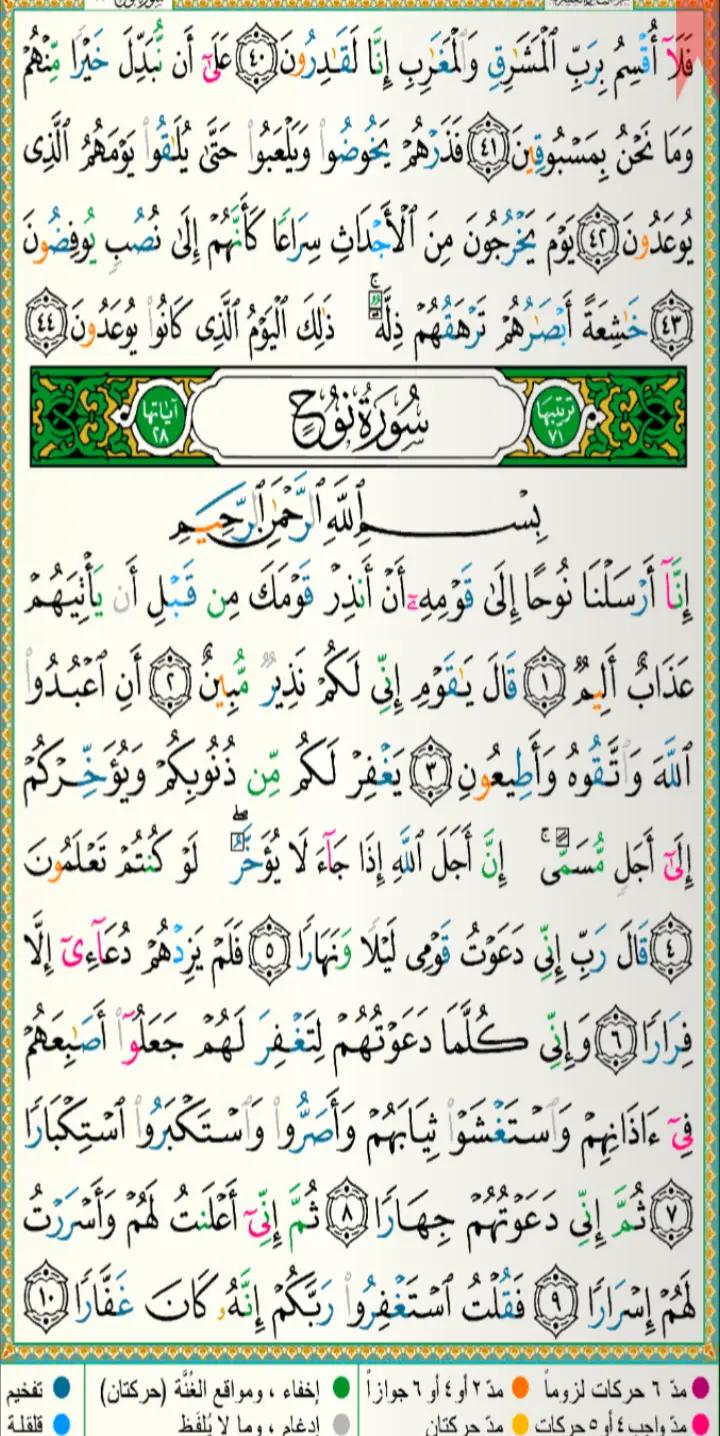 فَلَآ أُقْسِمُ بِرَبِّ ٱلْمَشَٰرِقِ وَٱلْمَغَٰرِبِ إِنَّا لَقَٰدِرُونَ ٤٠ عَلَىٰٓ أَن نُّبَدِّلَ خَيْرًا مِّنْهُمْ
وَمَا نَحْنُ بِمَسْبُوقِينَ ٤١ فَذَرْهُمْ يَخُوضُوا۟ وَيَلْعَبُوا۟ حَتَّىٰ يُلَٰقُوا۟ يَوْمَهُمُ ٱلَّذِى
يُوعَدُونَ ٤٢ يَوْمَ يَخْرُجُونَ مِنَ ٱلْأَجْدَاثِ سِرَاعًا كَأَنَّهُمْ إِلَىٰ نُصُبٍ يُوفِضُونَ
٤٣ خَٰشِعَةً أَبْصَٰرُهُمْ تَرْهَقُهُمْ ذِلَّةٌ ۚ ذَٰلِكَ ٱلْيَوْمُ ٱلَّذِى كَانُوا۟ يُوعَدُونَ ٤٤
ترتيبها ٧١ سُورَةُ نُوحٍ آياتها ٢٨
بِسْمِ ٱللَّهِ ٱلرَّحْمَٰنِ ٱلرَّحِيمِ
إِنَّآ أَرْسَلْنَا نُوحًا إِلَىٰ قَوْمِهِۦٓ أَنْ أَنذِرْ قَوْمَكَ مِن قَبْلِ أَن يَأْتِيَهُمْ
عَذَابٌ أَلِيمٌ ١ قَالَ يَٰقَوْمِ إِنِّى لَكُمْ نَذِيرٌ مُّبِينٌ ٢ أَنِ ٱعْبُدُوا۟
ٱللَّهَ وَٱتَّقُوهُ وَأَطِيعُونِ ٣ يَغْفِرْ لَكُم مِّن ذُنُوبِكُمْ وَيُؤَخِّرْكُمْ
إِلَىٰٓ أَجَلٍ مُّسَمًّى ۚ إِنَّ أَجَلَ ٱللَّهِ إِذَا جَآءَ لَا يُؤَخَّرُ ۖ لَوْ كُنتُمْ تَعْلَمُونَ
٤ قَالَ رَبِّ إِنِّى دَعَوْتُ قَوْمِى لَيْلًا وَنَهَارًا ٥ فَلَمْ يَزِدْهُمْ دُعَآءِىٓ إِلَّا
فِرَارًا ٦ وَإِنِّى كُلَّمَا دَعَوْتُهُمْ لِتَغْفِرَ لَهُمْ جَعَلُوٓا۟ أَصَٰبِعَهُمْ
فِىٓ ءَاذَانِهِمْ وَٱسْتَغْشَوْا۟ ثِيَابَهُمْ وَأَصَرُّوا۟ وَٱسْتَكْبَرُوا۟ ٱسْتِكْبَارًا
٧ ثُمَّ إِنِّى دَعَوْتُهُمْ جِهَارًا ٨ ثُمَّ إِنِّىٓ أَعْلَنتُ لَهُمْ وَأَسْرَرْتُ
لَهُمْ إِسْرَارًا ٩ فَقُلْتُ ٱسْتَغْفِرُوا۟ رَبَّكُمْ إِنَّهُۥ كَانَ غَفَّارًا ١٠
مدّ ٦ حركات لزوماً مدّ ٢ أو ٤ أو ٦ جوازاً إخفاء ، ومواقع الغُنَّة (حركتان) تفخيم
مدّ واجب ٤ أو ٥ حركات مدّ حركتان إدغام ، وما لا يُلفَظ قلقلة